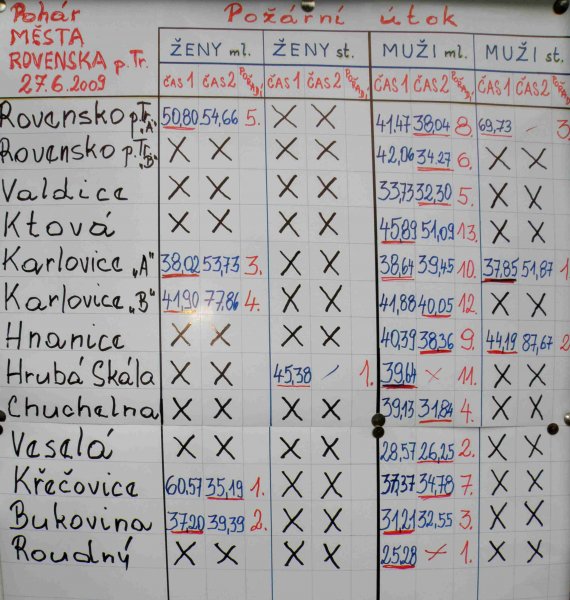 Pohár
MĚSTA
ROVENSKA p. Tr.
27.6.2009
Požární útok
ŽENY ml. ŽENY st. MUŽI ml. MUŽI st.
ČAS 1 ČAS 2 POŘADÍ ČAS 1 ČAS 2 POŘADÍ ČAS 1 ČAS 2 POŘADÍ ČAS 1 ČAS 2 POŘADÍ
Rovensko p. Tr. "A" 50,80 54,66 5. X X 41,47 38,04 8. 69,73 – 3.
Rovensko p. Tr. "B" X X X X 42,06 34,27 6. X X
Valdice X X X X 33,73 32,30 5. X X
Ktová X X X X 45,89 51,09 13. X X
Karlovice „A" 38,02 53,73 3. X X 38,64 39,45 10. 37,85 51,87 1
Karlovice „B" 41,90 77,86 4. X X 41,88 40,05 12. X X
Hnanice X X X X 40,39 38,36 9. 44,19 87,67 2
Hrubá Skála X X 45,38 – 1. 39,64 X 11. X X
Chuchelna X X X X 39,13 31,84 4. X X
Veselá X X X X 28,57 26,25 2. X X
Křečovice 60,57 35,19 1. X X 37,37 34,78 7. X X
Bukovina 37,20 39,39 2. X X 31,21 32,55 3. X X
Roudný X X X X 25,28 X 1. X X